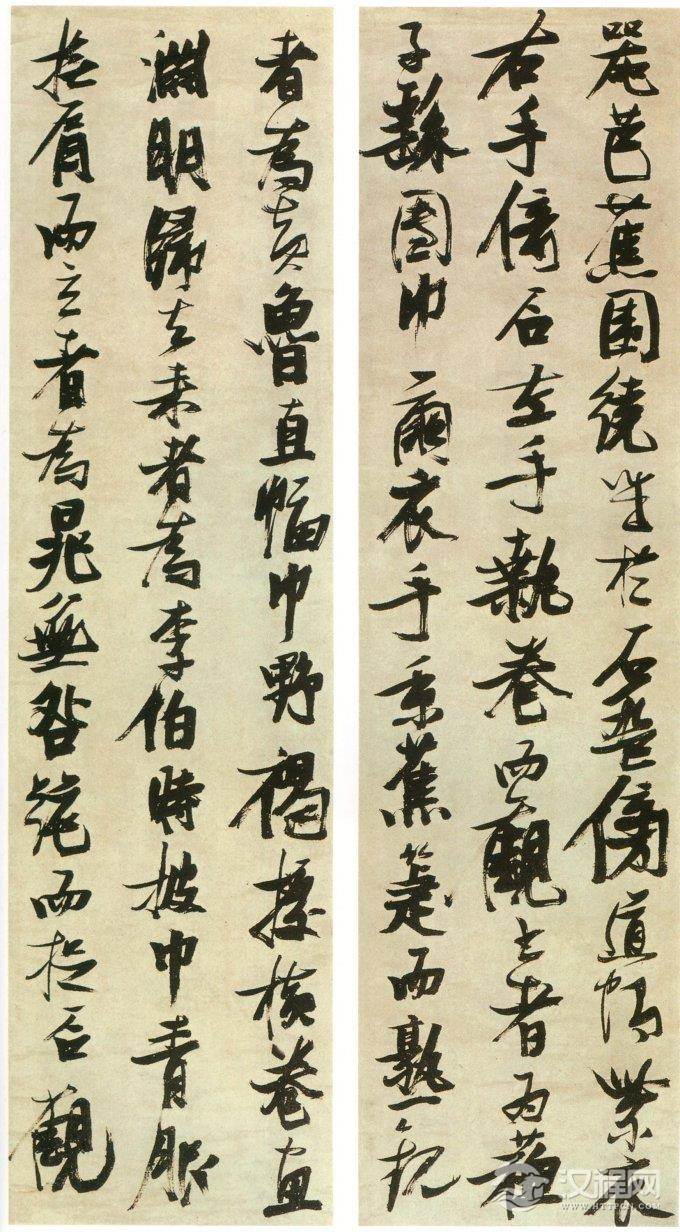 器芭蕉圍繞坐於石盤傍道帽紫衣
右手倚石左手執卷而觀書者為蘇
子繇團巾繭衣手秉蕉箑而熟視
者為黃魯直幅巾野褐據橫卷畫
淵明歸去來者為李伯時披巾青服
撫肩而立者為晁無咎跪而捉石觀
汉程网
WWW.HTTPCN.COM